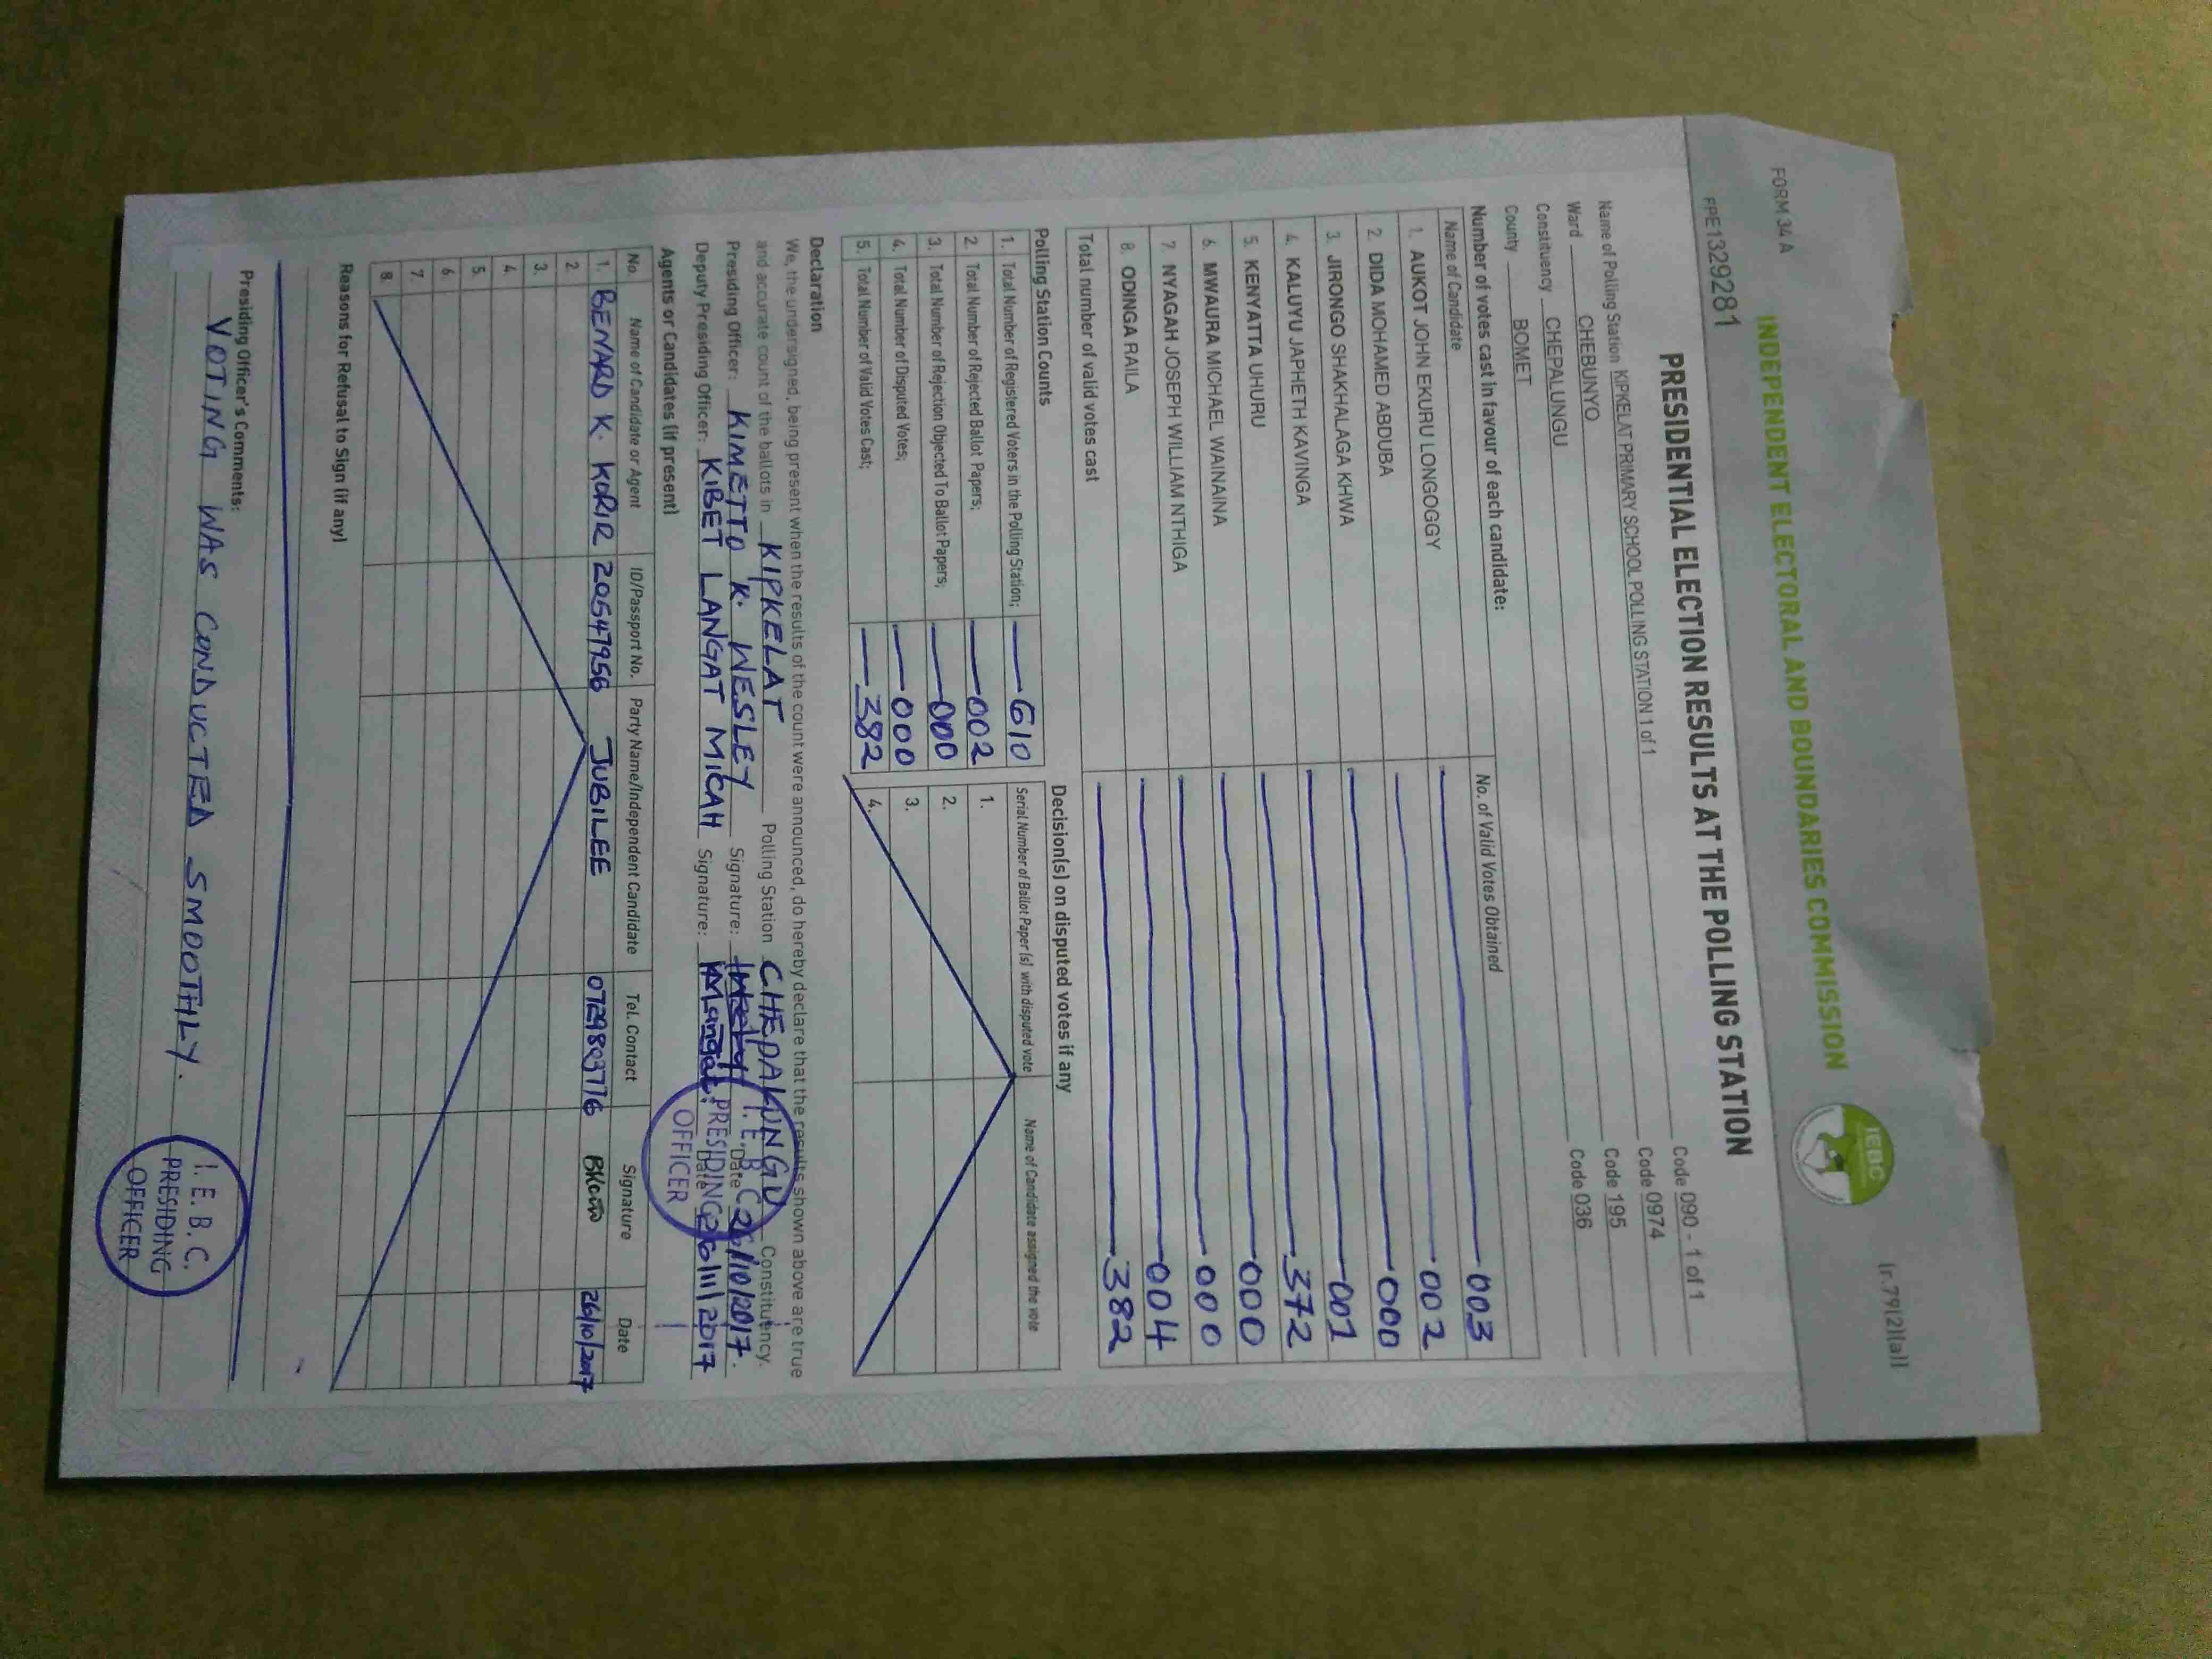 FORM 34 A
(r.79(2)(a))
INDEPENDENT ELECTORAL AND BOUNDARIES COMMISSION
IEBC
FPE1329281
PRESIDENTIAL ELECTION RESULTS AT THE POLLING STATION
Name of Polling Station KIPKELAT PRIMARY SCHOOL POLLING STATION 1 of 1 Code 090 - 1 of 1
Ward CHEBUNYO Code 0974
Constituency CHEPALUNGU Code 195
County BOMET Code 036
Number of votes cast in favour of each candidate:
Name of Candidate No. of Valid Votes Obtained
1. AUKOT JOHN EKURU LONGOGGY 003
2. DIDA MOHAMED ABDUBA 002
3. JIRONGO SHAKHALAGA KHWA 000
4. KALUYU JAPHETH KAVINGA 001
5. KENYATTA UHURU 372
6. MWAURA MICHAEL WAINAINA 000
7. NYAGAH JOSEPH WILLIAM NTHIGA 000
8. ODINGA RAILA 004
Total number of valid votes cast 382
Polling Station Counts
1. Total Number of Registered Voters in the Polling Station; 610
2. Total Number of Rejected Ballot Papers; 002
3. Total Number of Rejection Objected To Ballot Papers; 000
4. Total Number of Disputed Votes; 000
5. Total Number of Valid Votes Cast; 382
Decision(s) on disputed votes if any
Serial Number of Ballot Paper (s) with disputed vote Name of Candidate assigned the vote
1.
2.
3.
4.
Declaration
We, the undersigned, being present when the results of the count were announced, do hereby declare that the results shown above are true
and accurate count of the ballots in KIPKELAT Polling Station CHEPALUNGU Constituency.
Presiding Officer: KIMETTO K. WESLEY Signature: Date 26/10/2017.
Deputy Presiding Officer: KIBET LANGAT MICAH Signature: Date
I. E. B. C.
PRESIDING
OFFICER
Agents or Candidates (if present)
No. Name of Candidate or Agent ID/Passport No. Party Name/Independent Candidate Tel. Contact Signature Date
1. BENARD K. KORIR 20547956 JUBILEE 0729803776 26/10/2017
2.
3.
4.
5.
6.
7.
8.
Reasons for Refusal to Sign (if any)
Presiding Officer's Comments:
VOTING WAS CONDUCTED SMOOTHLY.
I. E. B. C.
PRESIDING
OFFICER